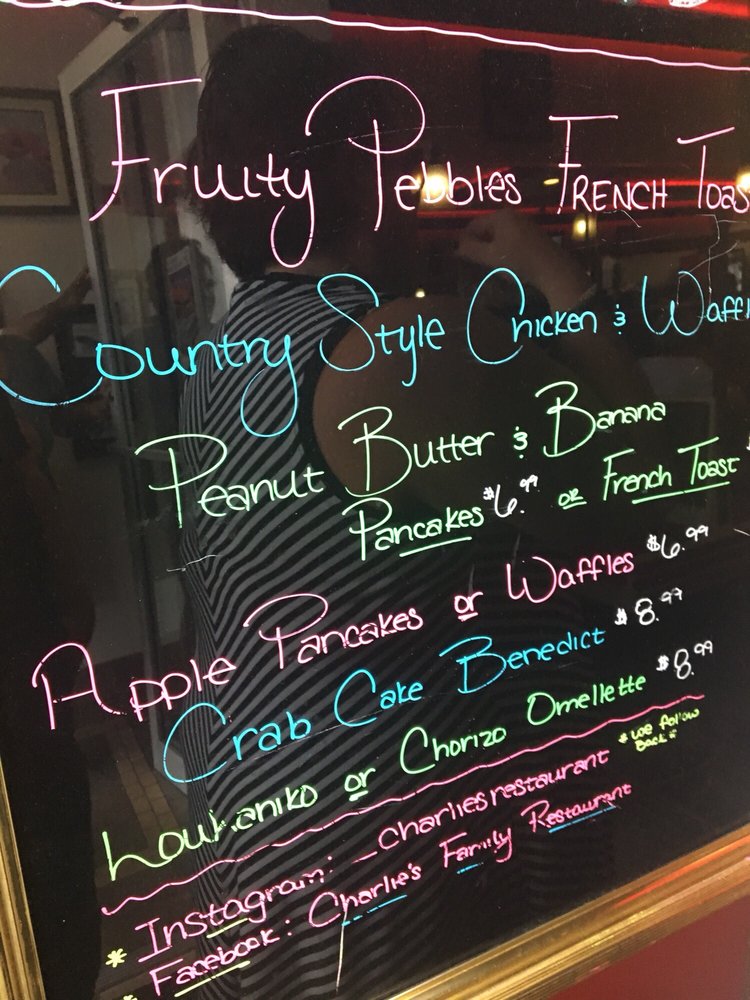 Fruity Pebbles French Toas
Country Style Chicken & Waffl
Peanut Butter & Banana
Pancakes $6.99 or French Toast $
Apple Pancakes or Waffles $6.99
Crab Cake Benedict $8.99
Loukaniko or Chorizo Omellette $8.99
* Instagram: _charliesrestaurant *we follow
back
* Facebook: Charlie's Family Restaurant